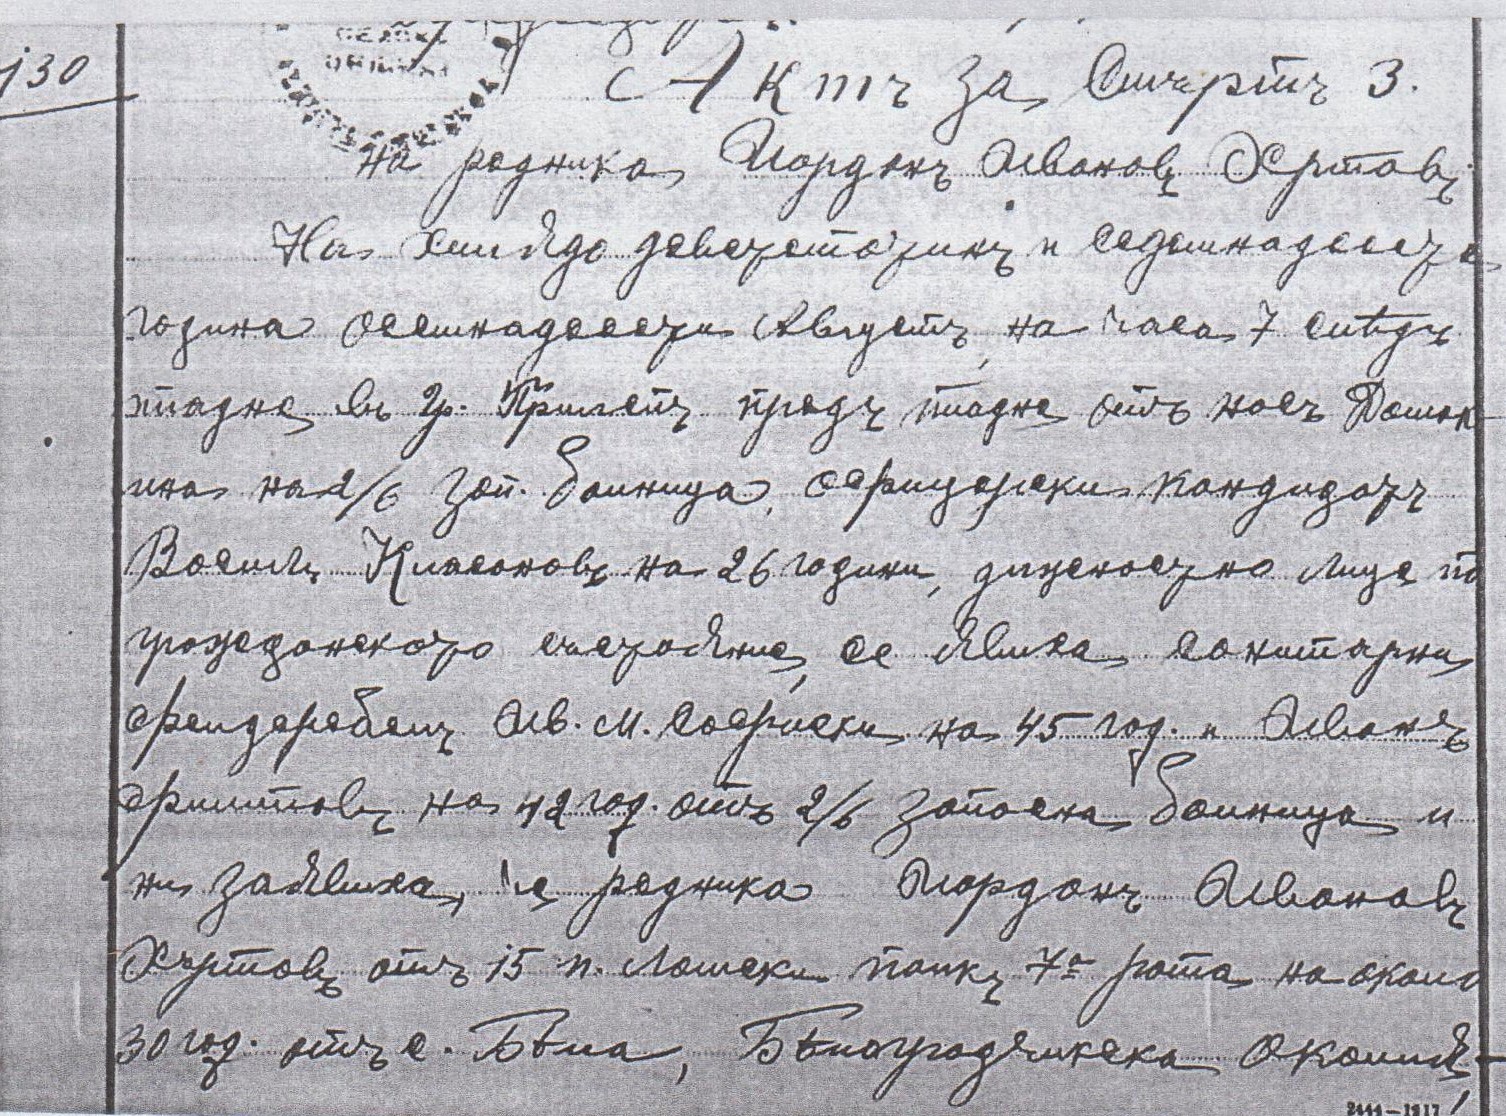 130
Актъ за Смърть 3.
на редника Йорданъ Ивановъ Хъртовъ
На хилядо деветстотинъ и седемнадесета
година осемнадесети Августъ, на часа 7 слѣдъ
пладне въ гр. Прилепъ предъ пладне отъ насъ Дома-
кина на 2/6 зап. болница, офицерски кандидатъ
Василъ Класановъ на 26 години, длъжностно лице по
гражданското състояние, се явиха санитарни
фелдфебелъ Ив. М. Софиски на 45 год. и Иванъ
Христовъ на 42 год. отъ 2/6 запасна болница и
ни заявиха, че редника Йорданъ Ивановъ
Хъртовъ отъ 15 п. Ломски полкъ 7а рота на около
30 год. отъ с. Бѣла, Бѣлоградчикска околия,